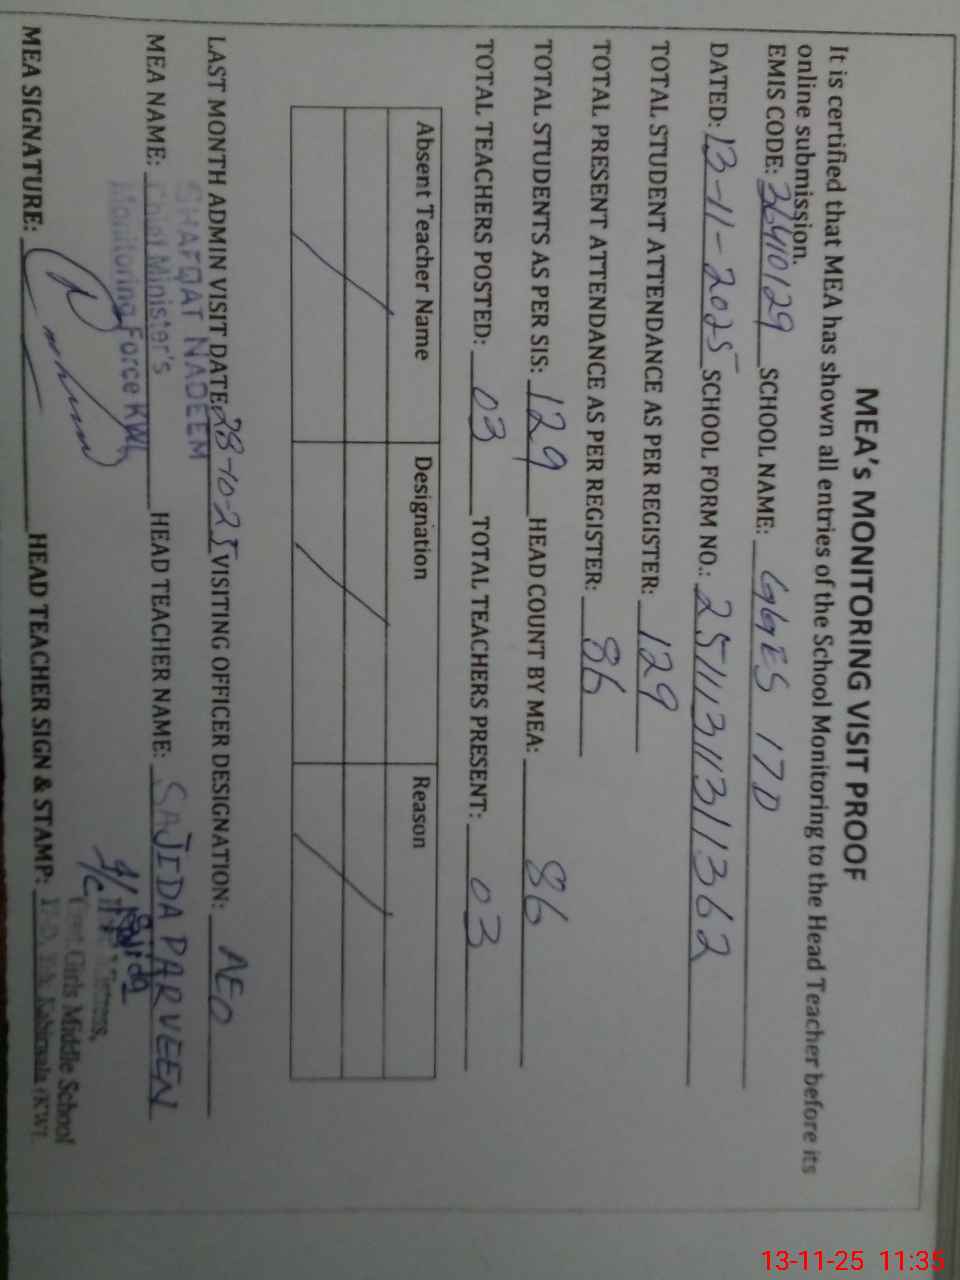 MEA's MONITORING VISIT PROOF
It is certified that MEA has shown all entries of the School Monitoring to the Head Teacher before its
online submission.
EMIS CODE: 36410129 SCHOOL NAME: GGES 17D
DATED: 13-11-2025 SCHOOL FORM NO.: 25111311311362
TOTAL STUDENT ATTENDANCE AS PER REGISTER: 129
TOTAL PRESENT ATTENDANCE AS PER REGISTER: 86
TOTAL STUDENTS AS PER SIS: 129 HEAD COUNT BY MEA: 86
TOTAL TEACHERS POSTED: 03 TOTAL TEACHERS PRESENT: 03
Absent Teacher Name Designation Reason
LAST MONTH ADMIN VISIT DATE: 28-10-25 VISITING OFFICER DESIGNATION: AEO
SHAFQAT NADEEM
MEA NAME: Chief Minister's HEAD TEACHER NAME: SAJIDA PARVEEN
Monitoring Force KWL
Sajida
I/C
Govt. Girls Middle School
MEA SIGNATURE: HEAD TEACHER SIGN & STAMP:
13-11-25 11:35